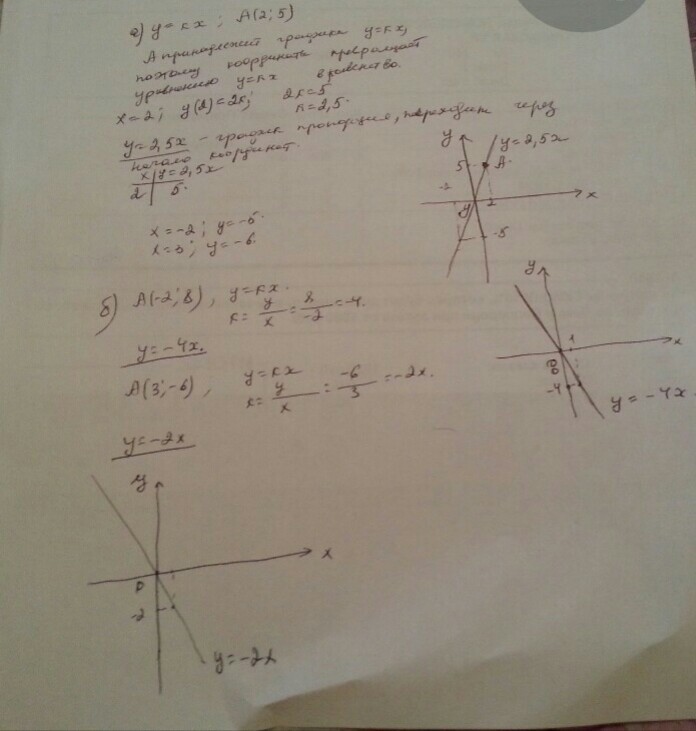 а) y = кx ; A(2; 5)
A принадлежит графика y=кx,
поэтому координаты превращает
уравнению y=кx в равенство.
x=2; y(2)=2к; 2к=5
к=2,5.
y=2,5x – график пропорция, переходит через
начало координат.
x y=2,5x
2 5.
x=-2; y=-5.
x=3; y=-6.
y
y=2,5x
5 A.
-2 2 x
-5
б) A(-2; 8), y=кx.
к= y/x = 8/-2 = -4.
y=-4x.
y
1 x
0
-4
y = -4x
A(3;-6), y=кx
к= y/x = -6/3 = -2x.
y=-2x
y
x
0
-2
y=-2x